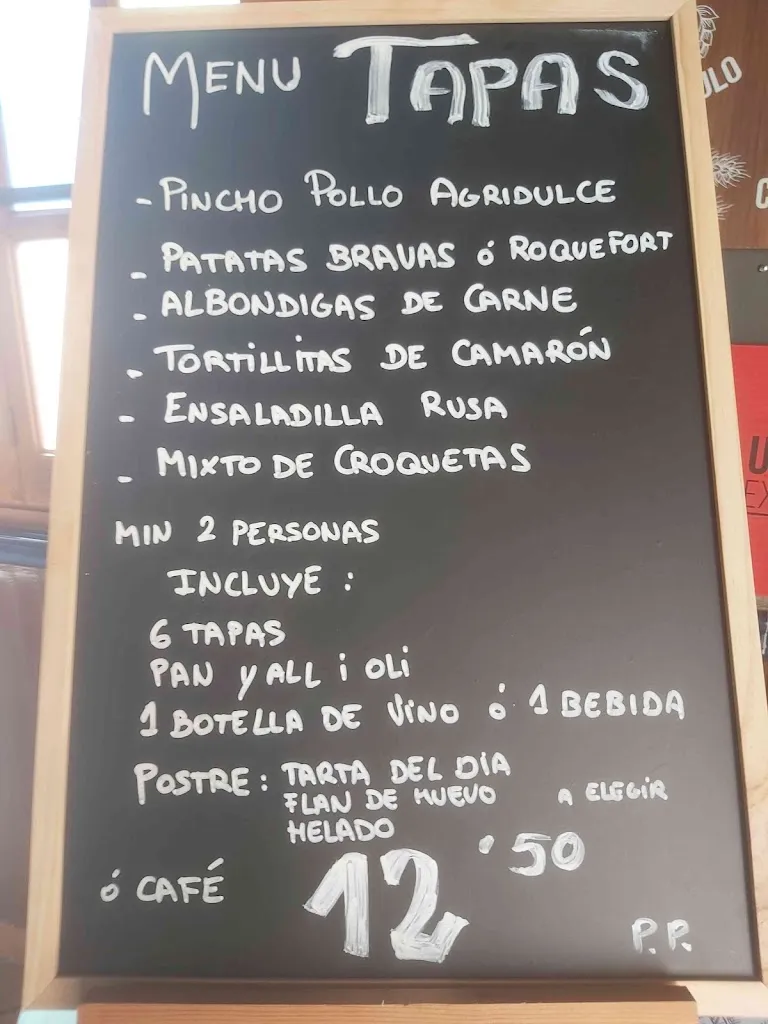 MENU TAPAS
- PINCHO POLLO AGRIDULCE
- PATATAS BRAVAS ó ROQUEFORT
- ALBONDIGAS DE CARNE
- TORTILLITAS DE CAMARÓN
- ENSALADILLA RUSA
- MIXTO DE CROQUETAS
MIN 2 PERSONAS
INCLUYE :
6 TAPAS
PAN Y ALL i OLI
1 BOTELLA DE VINO ó 1 BEBIDA
POSTRE : TARTA DEL DIA
FLAN DE HUEVO A ELEGIR
HELADO
ó CAFÉ 12 '50
P.P.